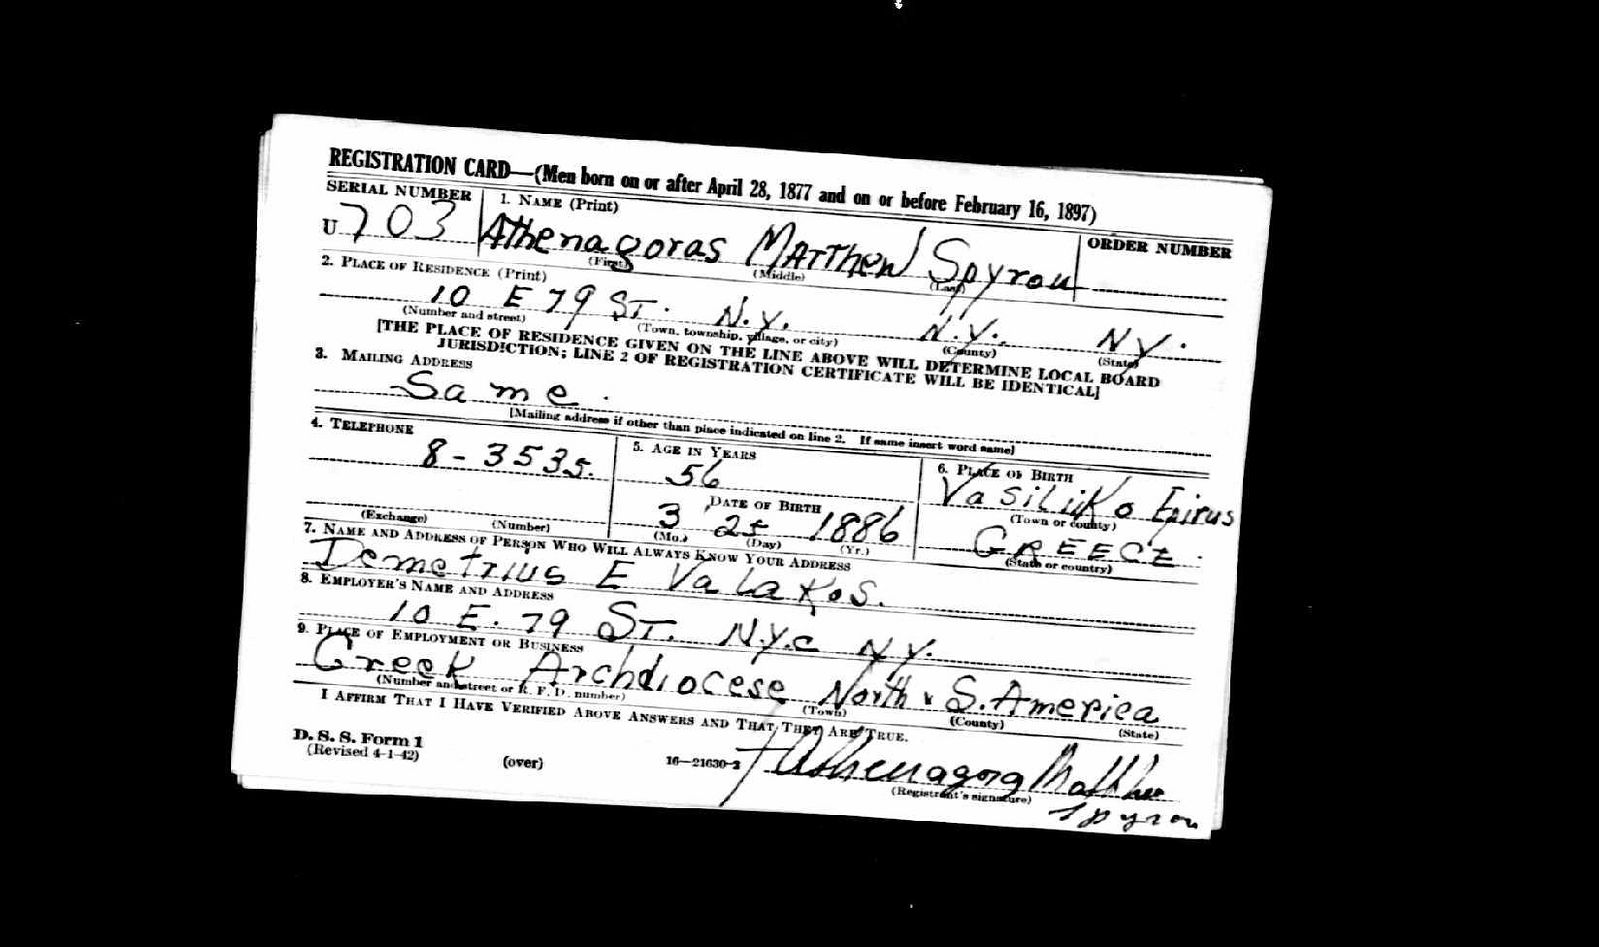 REGISTRATION CARD—(Men born on or after April 28, 1877 and on or before February 16, 1897)
SERIAL NUMBER
1. NAME (Print)
ORDER NUMBER
U 703
Athenagoras Matthew Spyrou
(First) (Middle) (Last)
2. PLACE OF RESIDENCE (Print)
10 E 79 ST. N.Y. N.Y. NY.
(Number and street) (Town, township, village, or city) (County) (State)
[THE PLACE OF RESIDENCE GIVEN ON THE LINE ABOVE WILL DETERMINE LOCAL BOARD
JURISDICTION; LINE 2 OF REGISTRATION CERTIFICATE WILL BE IDENTICAL]
3. MAILING ADDRESS
Same.
[Mailing address if other than place indicated on line 2. If same insert word same]
4. TELEPHONE
8-3535.
(Exchange) (Number)
5. AGE IN YEARS
56
DATE OF BIRTH
3 25 1886
(Mo.) (Day) (Yr.)
6. PLACE OF BIRTH
Vasiliko Epirus
(Town or county)
GREECE.
(State or country)
7. NAME AND ADDRESS OF PERSON WHO WILL ALWAYS KNOW YOUR ADDRESS
Demetrius E Valakos.
8. EMPLOYER'S NAME AND ADDRESS
10 E. 79 ST. N.Y.C NY.
9. PLACE OF EMPLOYMENT OR BUSINESS
Greek Archdiocese North & S. America
(Number and street or R. F. D. number) (Town) (County) (State)
I AFFIRM THAT I HAVE VERIFIED ABOVE ANSWERS AND THAT THEY ARE TRUE.
D. S. S. Form 1
(Revised 4-1-42)
(over)
16—21630-2
Athenagoras Matthew
(Registrant's signature)
Spyrou